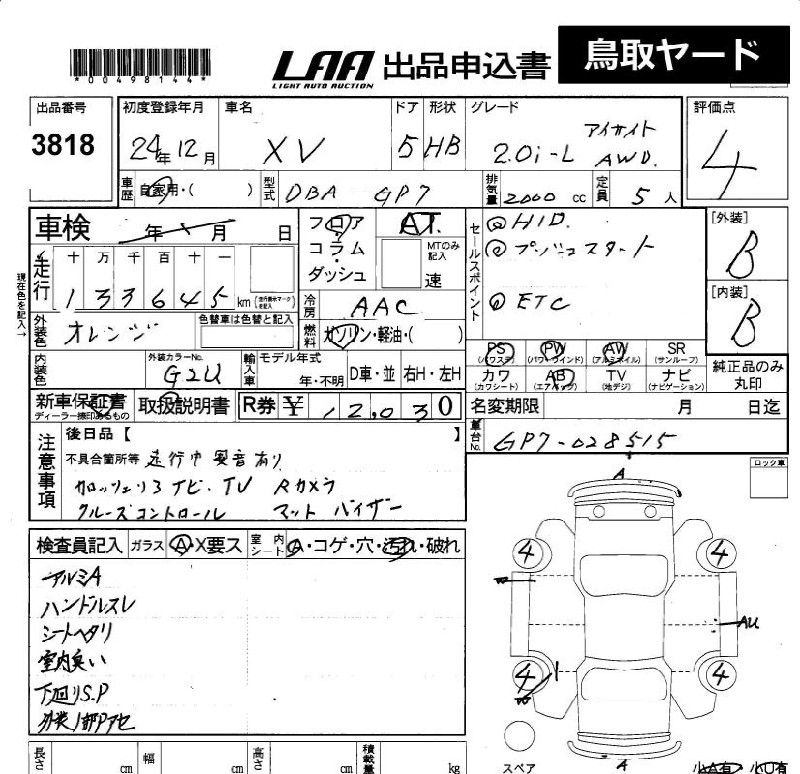 *00498144*
LAA 出品申込書 鳥取ヤード
LIGHT AUTO AUCTION
出品番号 初度登録年月 車名 ドア 形状 グレード 評価点
3818 24年12月 XV 5 HB 2.0i-L アイサイト AWD. 4
車歴 自家用・( ) 型式 DBA GP7 排気量 2000 cc 定員 5 人
車検 年 月 日 フロア AT. セールスポイント ◎HID. [外装]
走行 十 万 千 百 十 一 コラム MTのみ記入 ◎プッシュスタート B
133645 km (走行表示マークを記入) ダッシュ 速 [内装]
現在色を記入→ 冷房 AAC ◎ETC B
外装色 オレンジ 色替車は色替と記入 燃料 ガソリン・軽油・( )
内装色 外装カラーNo. G2U 輸入車 モデル年式 年・不明 D車・並 右H・左H
PS (パワステ) PW (パワーウインド) AW (アルミホイル) SR (サンルーフ)
カワ (カワシート) AB (エアバッグ) TV (地デジ) ナビ (ナビゲーション) 純正品のみ丸印
新車保証書 取扱説明書 R券 ¥ 12,030 名変期限 月 日迄
ディーラー捺印あるもの
車台No. GP7-028515
注意事項 後日品【 】
不具合箇所等 走行中異音あり
カロッツェリアナビ・TV Rカメラ
クルーズコントロール マット バイザー
ロック車
検査員記入 ガラス A・X要ス 室内シート A・コゲ・穴・汚れ・破れ
アルミA
ハンドルスレ
シートヘタリ
室内臭い
下回りS.P
外装1部Pアセ
A
4 4
W
AU
4 4
W
A
スペア
長さ cm 幅 cm 高さ cm 積載量 kg